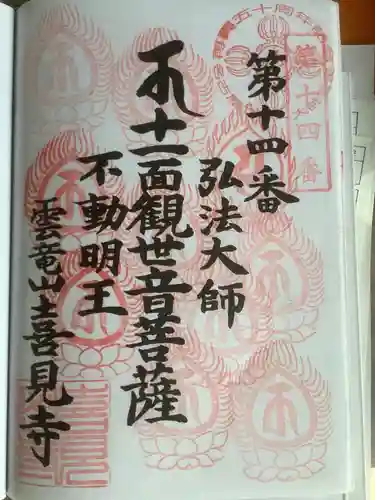 第十四番
弘法大師
十一面観世音菩薩
不動明王
雲竜山喜見寺
第十四番